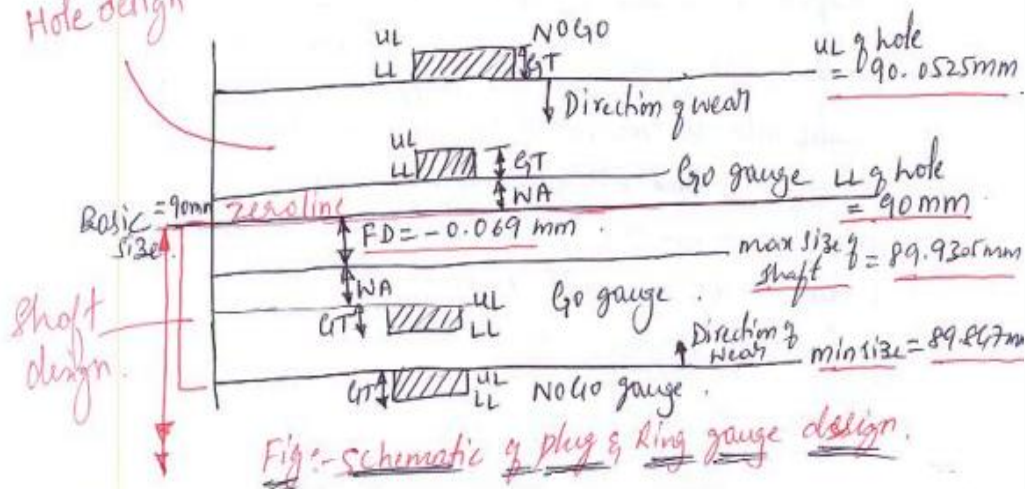 Hole design
UL NOGO
LL GT
UL of hole
= 90.0525mm
Direction of wear
UL
LL GT
WA
Go gauge LL of hole
= 90mm
Basic size = 90mm zeroline
FD = -0.069 mm
max size of shaft = 89.9305mm
WA
Go gauge.
GT UL
LL
Shaft design.
Direction of wear
min size = 89.847m
GT UL
LL NOGO gauge.
Fig:- schematic of plug & Ring gauge design.